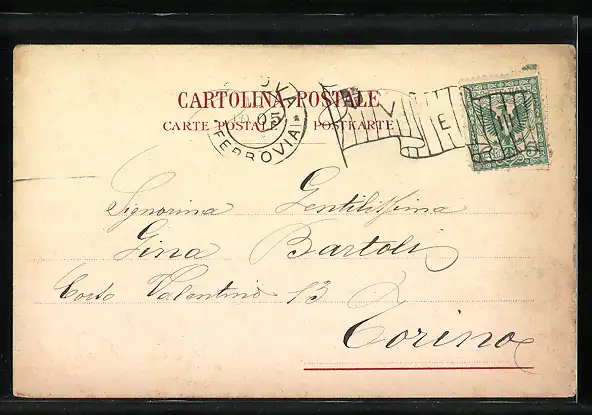 CARTOLINA POSTALE
CARTE POSTALE POSTKARTE
05
FERROVIA
V E III
5
Signorina Gentilissima
Gina Bartoli
Corso Valentino 13
Torino